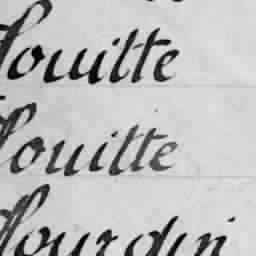 fouitte
fouitte
fourdin